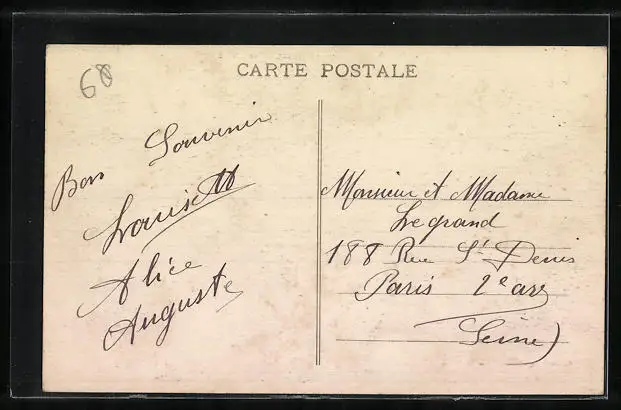 68
CARTE POSTALE
Bon Souvenir
Louisette
Alice
Auguste
Monsieur et Madame
Legrand
188 Rue St Denis
Paris 2e arr
Seine)